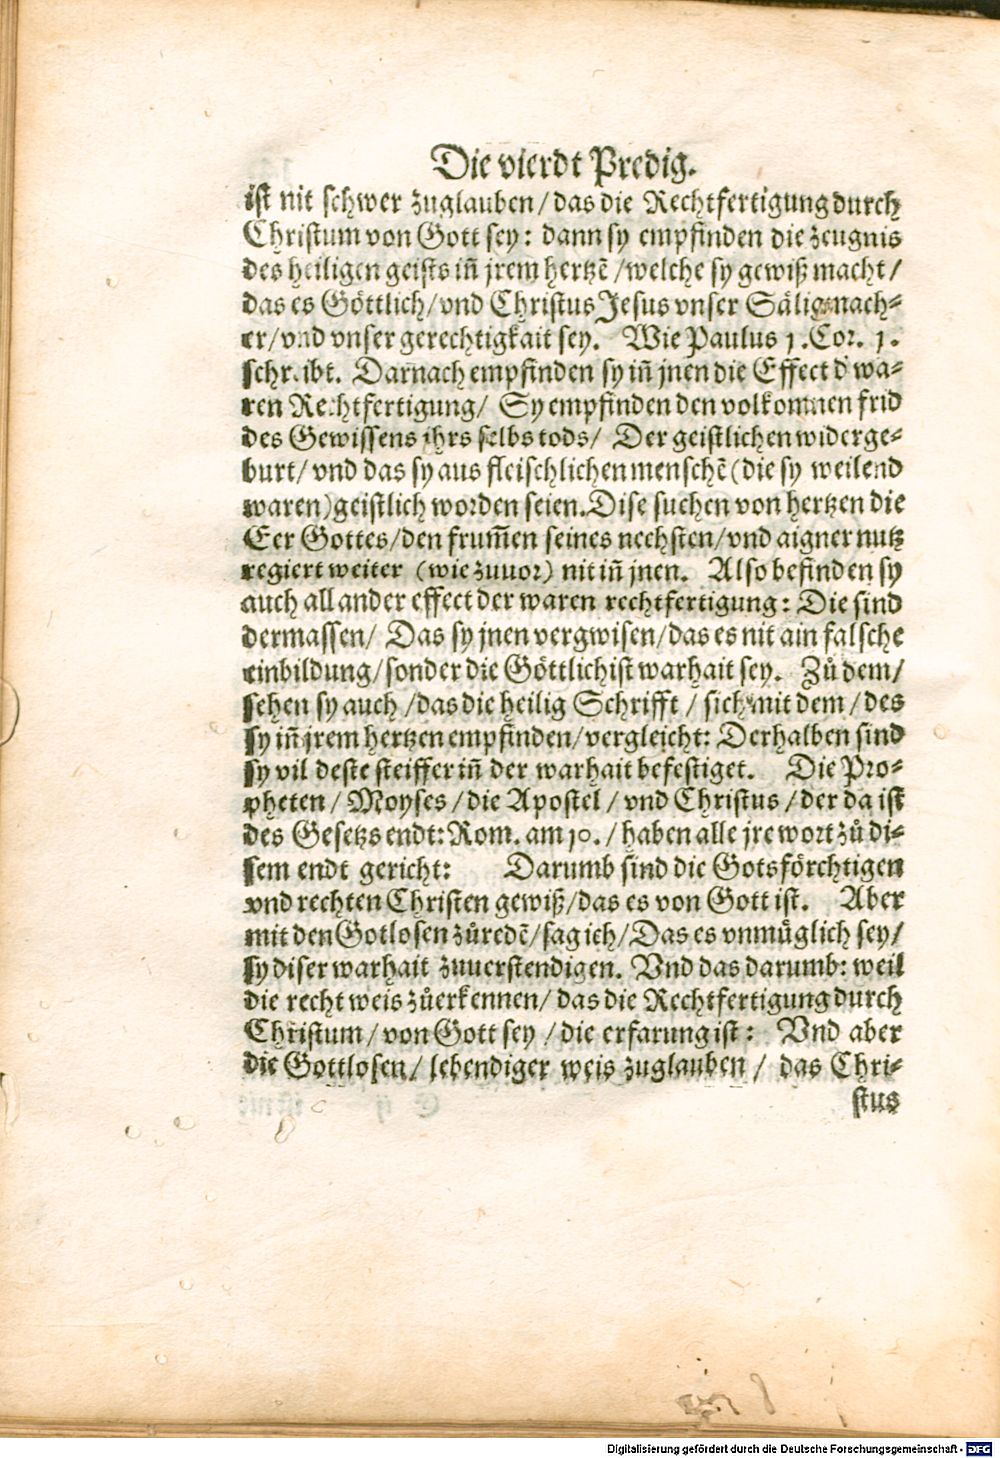 Die vierdt Predig.
ist nit schwer zuglauben/ das die Rechtfertigung durch
Christum von Gott sey: dann sy empfinden die zeugnis
des heiligen geists in̄ jrem hertzē /welche sy gewiß macht/
das es Göttlich/ vnd Christus Jesus vnser Säligmach⸗
er/ vnd vnser gerechtigkait sey. Wie Paulus 1. Cor. 1.
schreibt. Darnach empfinden sy in̄ jnen die Effect d' wa⸗
ren Rechtfertigung/ Sy empfinden den volkommen frid
des Gewissens ihrs selbs tods/ Der geistlichen widerge⸗
burt/ vnd das sy aus fleischlichen menschē (die sy weilend
waren) geistlich worden seien. Dise suchen von hertzen die
Eer Gottes/ den frum̄en seines nechsten/ vnd aigner nutz
regiert weiter (wie zuuor) nit in̄ jnen. Also befinden sy
auch all ander effect der waren rechtfertigung: Die sind
dermassen/ Das sy jnen vergwisen/ das es nit ain falsche
einbildung/ sonder die Göttlichist warhait sey. Zů dem/
sehen sy auch /das die heilig Schrifft / sich mit dem / des
sy in̄ jrem hertzen empfinden/ vergleicht: Derhalben sind
sy vil deste steiffer in̄ der warhait befestiget. Die Pro⸗
pheten / Moyses / die Apostel / vnd Christus / der da ist
des Gesetzs endt: Rom. am 10. / haben alle jre wort zů di⸗
sem endt gericht: Darumb sind die Gotsförchtigen
vnd rechten Christen gewiß/ das es von Gott ist. Aber
mit den Gotlosen zů redē/ sag ich/ Das es vnmüglich sey/
sy diser warhait zuuerstendigen. Vnd das darumb: weil
die recht weis zů erkennen/ das die Rechtfertigung durch
Christum / von Gott sey / die erfarung ist: Vnd aber
die Gottlosen/ lebendiger weis zuglauben / das Chri⸗
stus
Digitalisierung gefördert durch die Deutsche Forschungsgemeinschaft - DFG